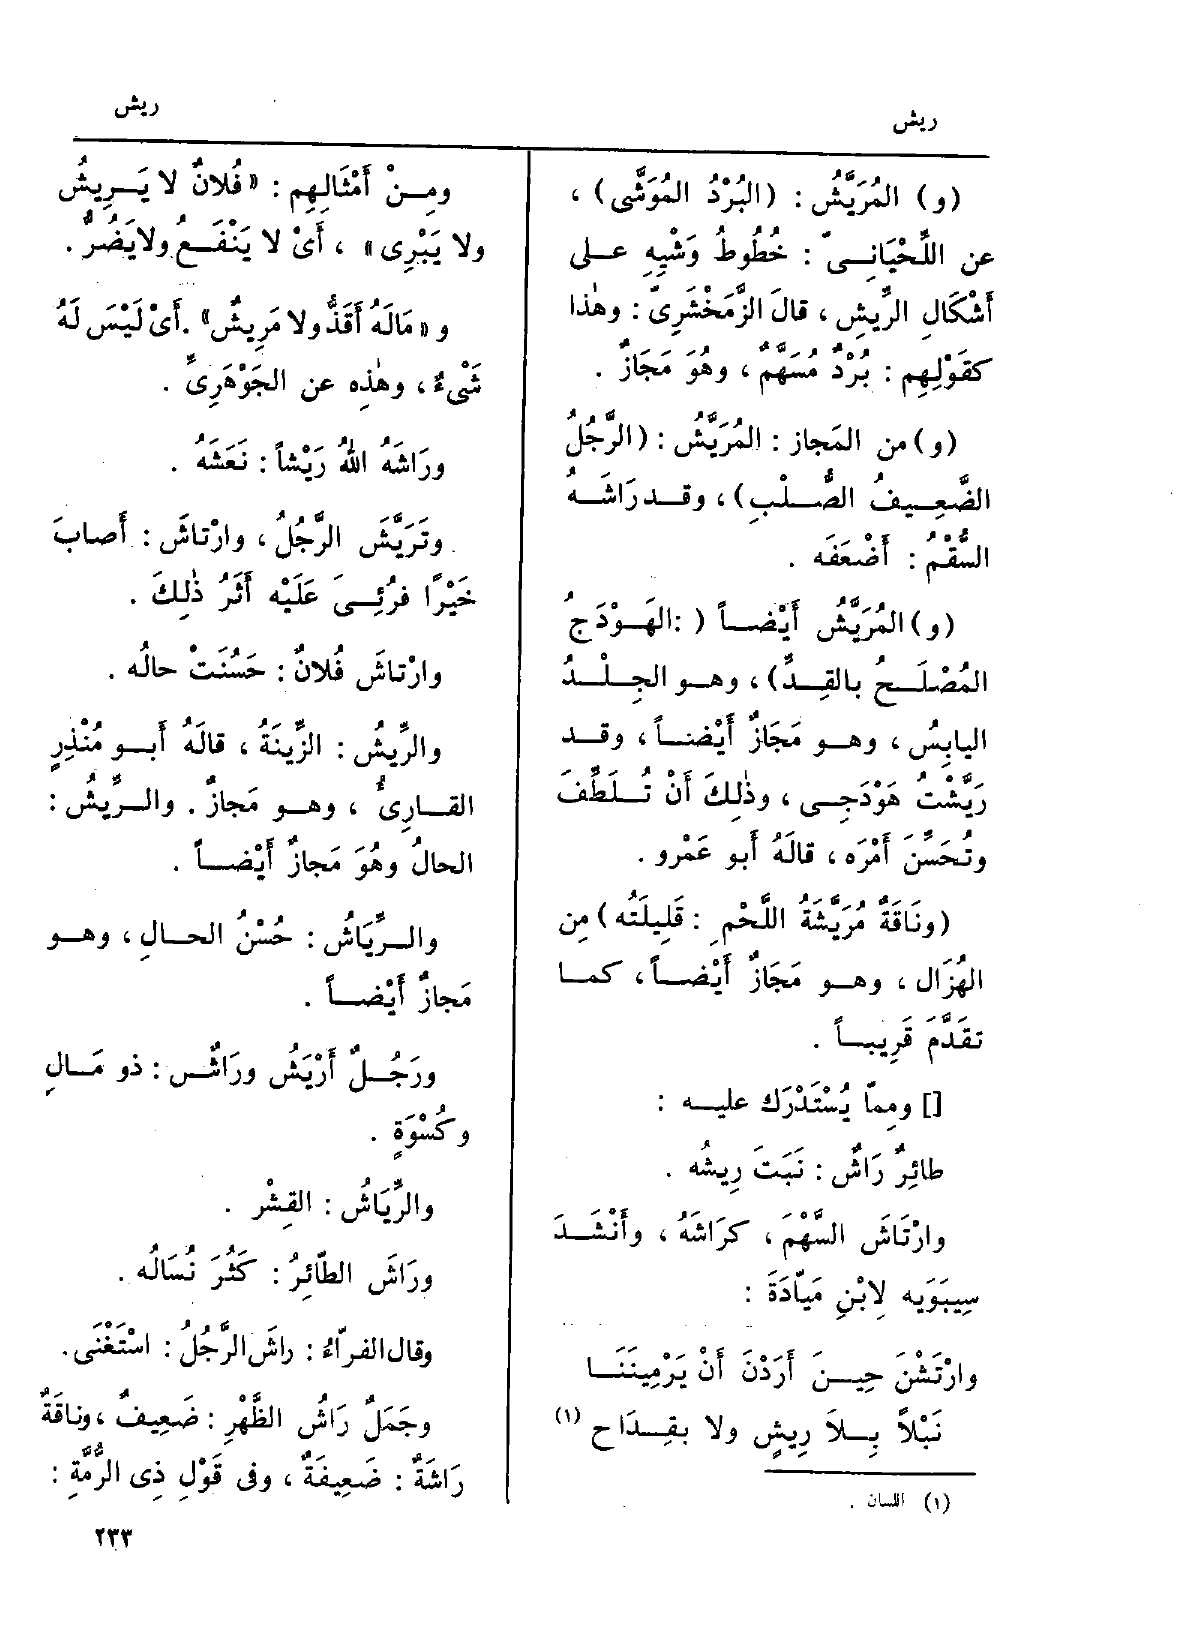 ريش
ريش
(و) المُرَيَّشُ : (البُرْدُ المُوَشَّى) ،
عن اللِّحْيَانِىّ : خُطُوطُ وَشْيِهِ على
أَشْكَالِ الرِّيشِ ، قالَ الزَّمَخْشَرِىّ : وهٰذا
كقَوْلِهِم : بُرْدٌ مُسَهَّمٌ ، وهُوَ مَجَازٌ .
(و) من المَجاز : المُرَيَّش : (الرَّجُلُ
الضَّعِيفُ الصُّلْبِ) ، وقد رَاشَهُ
السُّقْمُ : أَضْعَفَه .
(و) المُرَيَّشُ أَيْضاً ( : الهَوْدَجُ
المُصْلَحُ بالقِدِّ) ، وهو الجِلْدُ
اليابِسُ ، وهو مَجَازٌ أَيْضاً ، وقد
رَيَّشْتُ هَوْدَجِى ، وذٰلِكَ أَنْ تُلَطِّفَ
وتُحَسِّنَ أَمْرَه ، قالَهُ أَبو عَمْرو .
(ونَاقَةٌ مُرَيَّشَةُ اللَّحْمِ : قَلِيلَتُه) مِن
الهُزَال ، وهو مَجَازٌ أَيْضاً ، كما
تقَدَّمَ قَرِيباً .
[] ومِمّا يُسْتَدْرَك عليه :
طائِرٌ رَاشٌ : نَبَتَ رِيشُه .
وارْتَاشَ السَّهْمَ ، كرَاشَهُ ، وأَنْشَدَ
سِيبَوَيه لِابْنِ مَيّادَةَ :
وارْتَشْنَ حِينَ أَرَدْنَ أَنْ يَرْمِينَنَا
نَبْلاً بِلاَ رِيشٍ ولا بقِدَاحِ (١)
(١) اللسان .
ومِنْ أَمْثَالِهِم : « فُلانٌ لا يَرِيشُ
ولا يَبْرِى » ، أَىْ لا يَنْفَعُ ولايَضُرُّ .
و « مَالَهُ أَقَذُّ ولا مَرِيشٌ » . أَىْ لَيْسَ لَهُ
شَىْءٌ ، وهٰذِه عن الجَوْهَرِىِّ .
ورَاشَهُ اللهُ رَيْشاً : نَعَشَهُ .
وتَرَيَّشَ الرَّجُلُ ، وارْتاشَ : أَصابَ
خَيْرًا فرُئِىَ عَلَيْه أَثَرُ ذٰلِكَ .
وارْتاشَ فُلانٌ : حَسُنَتْ حالُه .
والرِّيشُ : الزِّينَةُ ، قالَهُ أَبو مُنْذِرٍ
القارِىُّ ، وهو مَجازٌ . والرِّيشُ :
الحالُ وهُوَ مَجازٌ أَيْضاً .
والرِّيَاشُ : حُسْنُ الحالِ ، وهو
مَجازٌ أَيْضاً .
ورَجُلٌ أَرْيَشُ ورَاشٌ : ذو مَالٍ
وكُسْوَةٍ .
والرِّيَاشُ : القِشْر .
ورَاشَ الطّائِرُ : كَثُرَ نُسَالُه .
وقال الفرّاءُ : راشَ الرَّجُلُ : اسْتَغْنَى .
وجَمَلٌ رَاشُ الظَّهْرِ : ضَعِيفٌ ، وناقَةٌ
رَاشَةٌ : ضَعِيفَةٌ ، وفى قَوْلِ ذِى الرُّمَّةِ :
٢٣٣